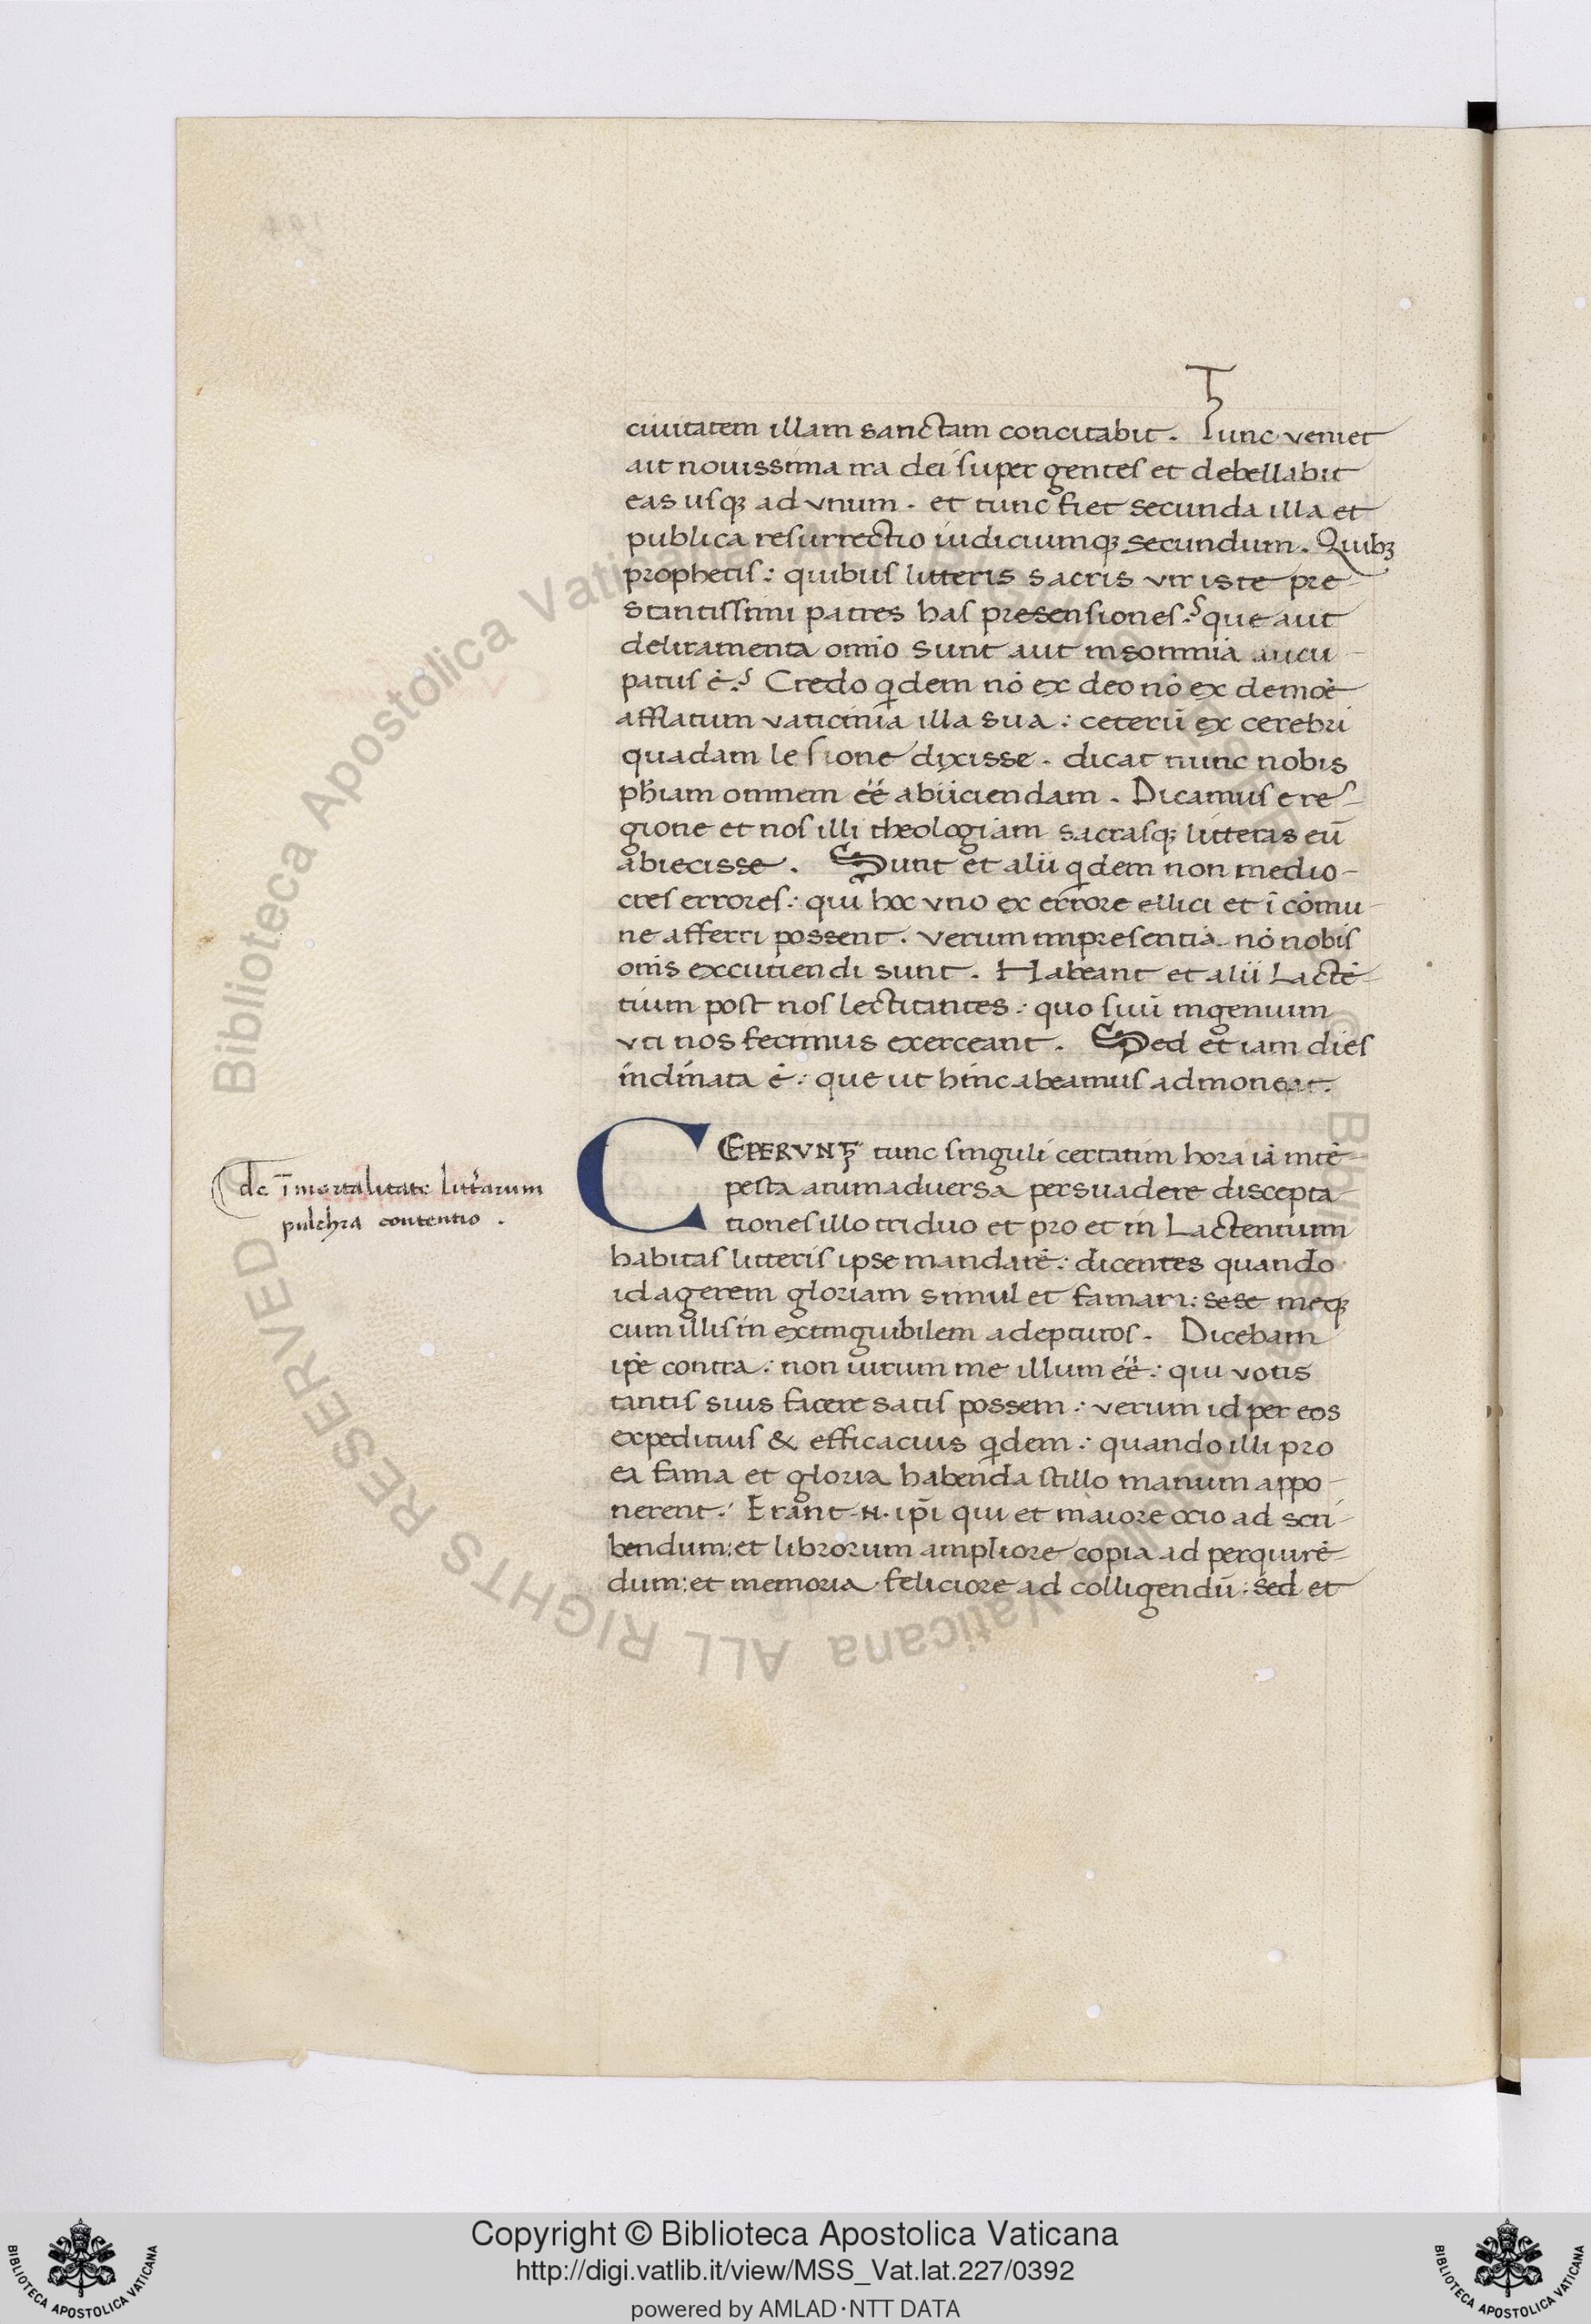 ciuitatem illam sanctam concitabit. Tunc veniet
ait nouissima ira dei super gentes et debellabit
eas usqꝫ ad vnum. et tunc fiet secunda illa et
publica resurrectio iudiciumqꝫ secundum. Quibꝫ
prophetis: quibus litteris sacris vir iste pre-
stantissimi patres has presensiones? que aut
deliramenta omīo sunt aut insomnia aucu-
patus ē? Credo qͥdem nō ex deo nō ex demōe
afflatum vaticinia illa sua: ceterū ex cerebri
quadam lesione dixisse. dicat nunc nobis
ph̄iam omnem eē abiiciendam. Dicamus e re-
gione et nos illi theologiam sacrasqꝫ litteras eū
abiecisse. Sunt et alii qͥdem non medio-
cres errores: qui hoc vno ex errore ellici et ī cōmu-
ne afferri possent. verum inpresentia nō nobis
om̄s excutiendi sunt. Habeant et alii Lactē-
tium post nos lectitantes: quo suū ingenium
vti nos fecimus exerceant. Sed et iam dies
inclinata ē: que ut hinc abeamus admoneat.
CEPERVNT tunc singuli certatim hora iā intē-
pesta animaduersa persuadere discepta-
tiones illo triduo et pro et in Lactentium
habitas litteris ipse mandarē: dicentes quando
id agerem gloriam simul et famam: sese meqꝫ
cum illis in extinguibilem adepturos. Dicebam
ip̄e contra: non uirum me illum eē: qui votis
tantis suis facere satis possem: verum id per eos
expeditius & efficacius qͥdem: quando illi pro
ea fama et gloria habenda stillo manum appo-
nerent. Erant .N. ip̄i qui et maiore ocio ad scri-
bendum: et librorum ampliore copia ad perquirē-
dum: et memoria feliciore ad colligendū: sed et
de īmortalitate litt̄arum
pulchra contentio.
© Biblioteca Apostolica Vaticana ALL RIGHTS RESERVED
Copyright © Biblioteca Apostolica Vaticana
http://digi.vatlib.it/view/MSS_Vat.lat.227/0392
powered by AMLAD·NTT DATA
BIBLIOTECA APOSTOLICA VATICANA
BIBLIOTECA APOSTOLICA VATICANA